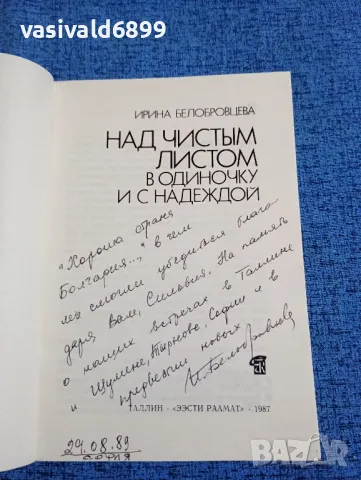 vasivald6899
ИРИНА БЕЛОБРОВЦЕВА
НАД ЧИСТЫМ
ЛИСТОМ
В ОДИНОЧКУ
И С НАДЕЖДОЙ
"Хороша страна
Болгария...", в чем
мы смогли убедиться благо-
даря Вам, Сильвия. На память
о наших встречах в Таллине
и Шумене, Тырнове, Софии и в
предвестии новых
И. Белобровцева
ТАЛЛИН · «ЭЭСТИ РААМАТ» · 1987
29.08.89
СОФИЯ
BAZAR